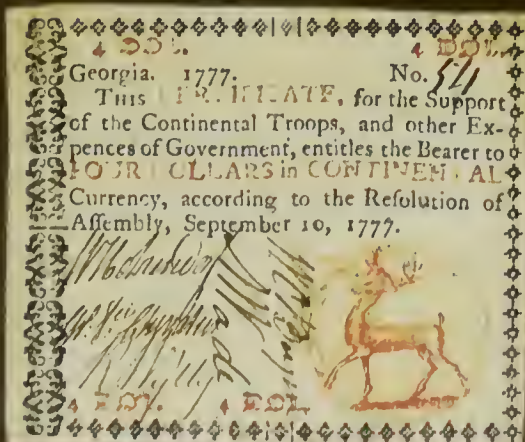 4 DOL. 4 DOL.
Georgia. 1777. No.
THIS CERTIFICATE, for the Support
of the Continental Troops, and other Ex-
pences of Government, entitles the Bearer to
FOUR DOLLARS in CONTINENTAL
Currency, according to the Reſolution of
Aſſembly, September 10, 1777.
4 DOL. 4 DOL.